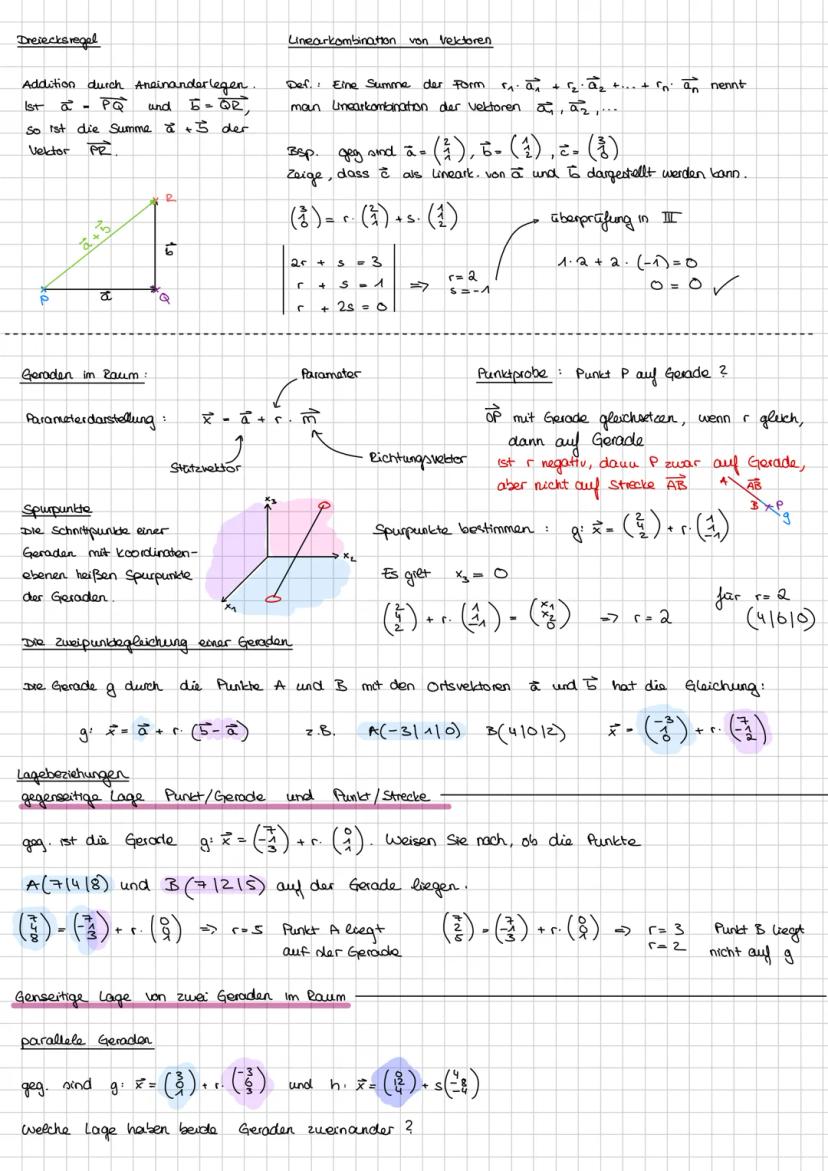 Dreiecksregel
Addition durch Aneinanderlegen.
Ist a⃗ = PQ⃗ und b⃗ = QR⃗,
so ist die Summe a⃗ + b⃗ der
Vektor PR⃗.
R
a⃗ + b⃗
b⃗
P
a⃗
Q
Linearkombination von Vektoren
Def.: Eine Summe der Form r₁·a₁⃗ + r₂·a₂⃗ +...+ rₙ·aₙ⃗ nennt
man Linearkombination der Vektoren a₁⃗, a₂⃗,...
Bsp. geg sind a⃗ = (2 1 1), b⃗ = (1 1 2), c⃗ = (3 1 0)
Zeige, dass c⃗ als Lineark. von a⃗ und b⃗ dargestellt werden kann.
(3 1 0) = r·(2 1 1) + s·(1 1 2)
| 2r + s = 3 |
| r + s = 1 | ⇒ r=2
s=-1
| r + 2s = 0 |
Überprüfung in III
1·2 + 2·(-1) = 0
0 = 0 ✓
Geraden im Raum:
Parameter
Parameterdarstellung: x⃗ = a⃗ + r · m⃗
Stützvektor
Richtungsvektor
Punktprobe: Punkt P auf Gerade?
OP⃗ mit Gerade gleichsetzen, wenn r gleich,
dann auf Gerade
Ist r negativ, dann P zwar auf Gerade,
aber nicht auf Strecke AB
A
AB
B
P
g
Spurpunkte
Die Schnittpunkte einer
Geraden mit Koordinaten-
ebenen heißen Spurpunkte
der Geraden.
x₃
x₂
x₁
Spurpunkte bestimmen: g: x⃗ = (2 4 2) + r·(1 1 -1)
Es gilt x₃ = 0
(2 4 2) + r·(1 1 -1) = (x₁ x₂ 0) ⇒ r = 2
für r=2
(4|6|0)
Die Zweipunktegleichung einer Geraden
Die Gerade g durch die Punkte A und B mit den Ortsvektoren a⃗ und b⃗ hat die Gleichung:
g: x⃗ = a⃗ + r·(b⃗-a⃗) z.B. A(-3|1|0) B(4|0|2) x⃗ = (-3 1 0) + r·(7 -1 2)
Lagebeziehungen
gegenseitige Lage Punkt/Gerade und Punkt/Strecke
geg. ist die Gerade g: x⃗ = (7 -1 3) + r·(0 1 1). Weisen Sie nach, ob die Punkte
A(7|4|8) und B(7|2|5) auf der Gerade liegen.
(7 4 8) = (7 -1 3) + r·(0 1 1) ⇒ r=5 Punkt A liegt
auf der Gerade
(7 2 5) = (7 -1 3) + r·(0 1 1) ⇒ r=3
r=2
Punkt B liegt
nicht auf g
Genseitige Lage von zwei Geraden im Raum
parallele Geraden
geg. sind g: x⃗ = (3 0 1) + r·(-3 6 3) und h: x⃗ = (0 12 4) + s(4 -8 -4)
Welche Lage haben beide Geraden zueinander?